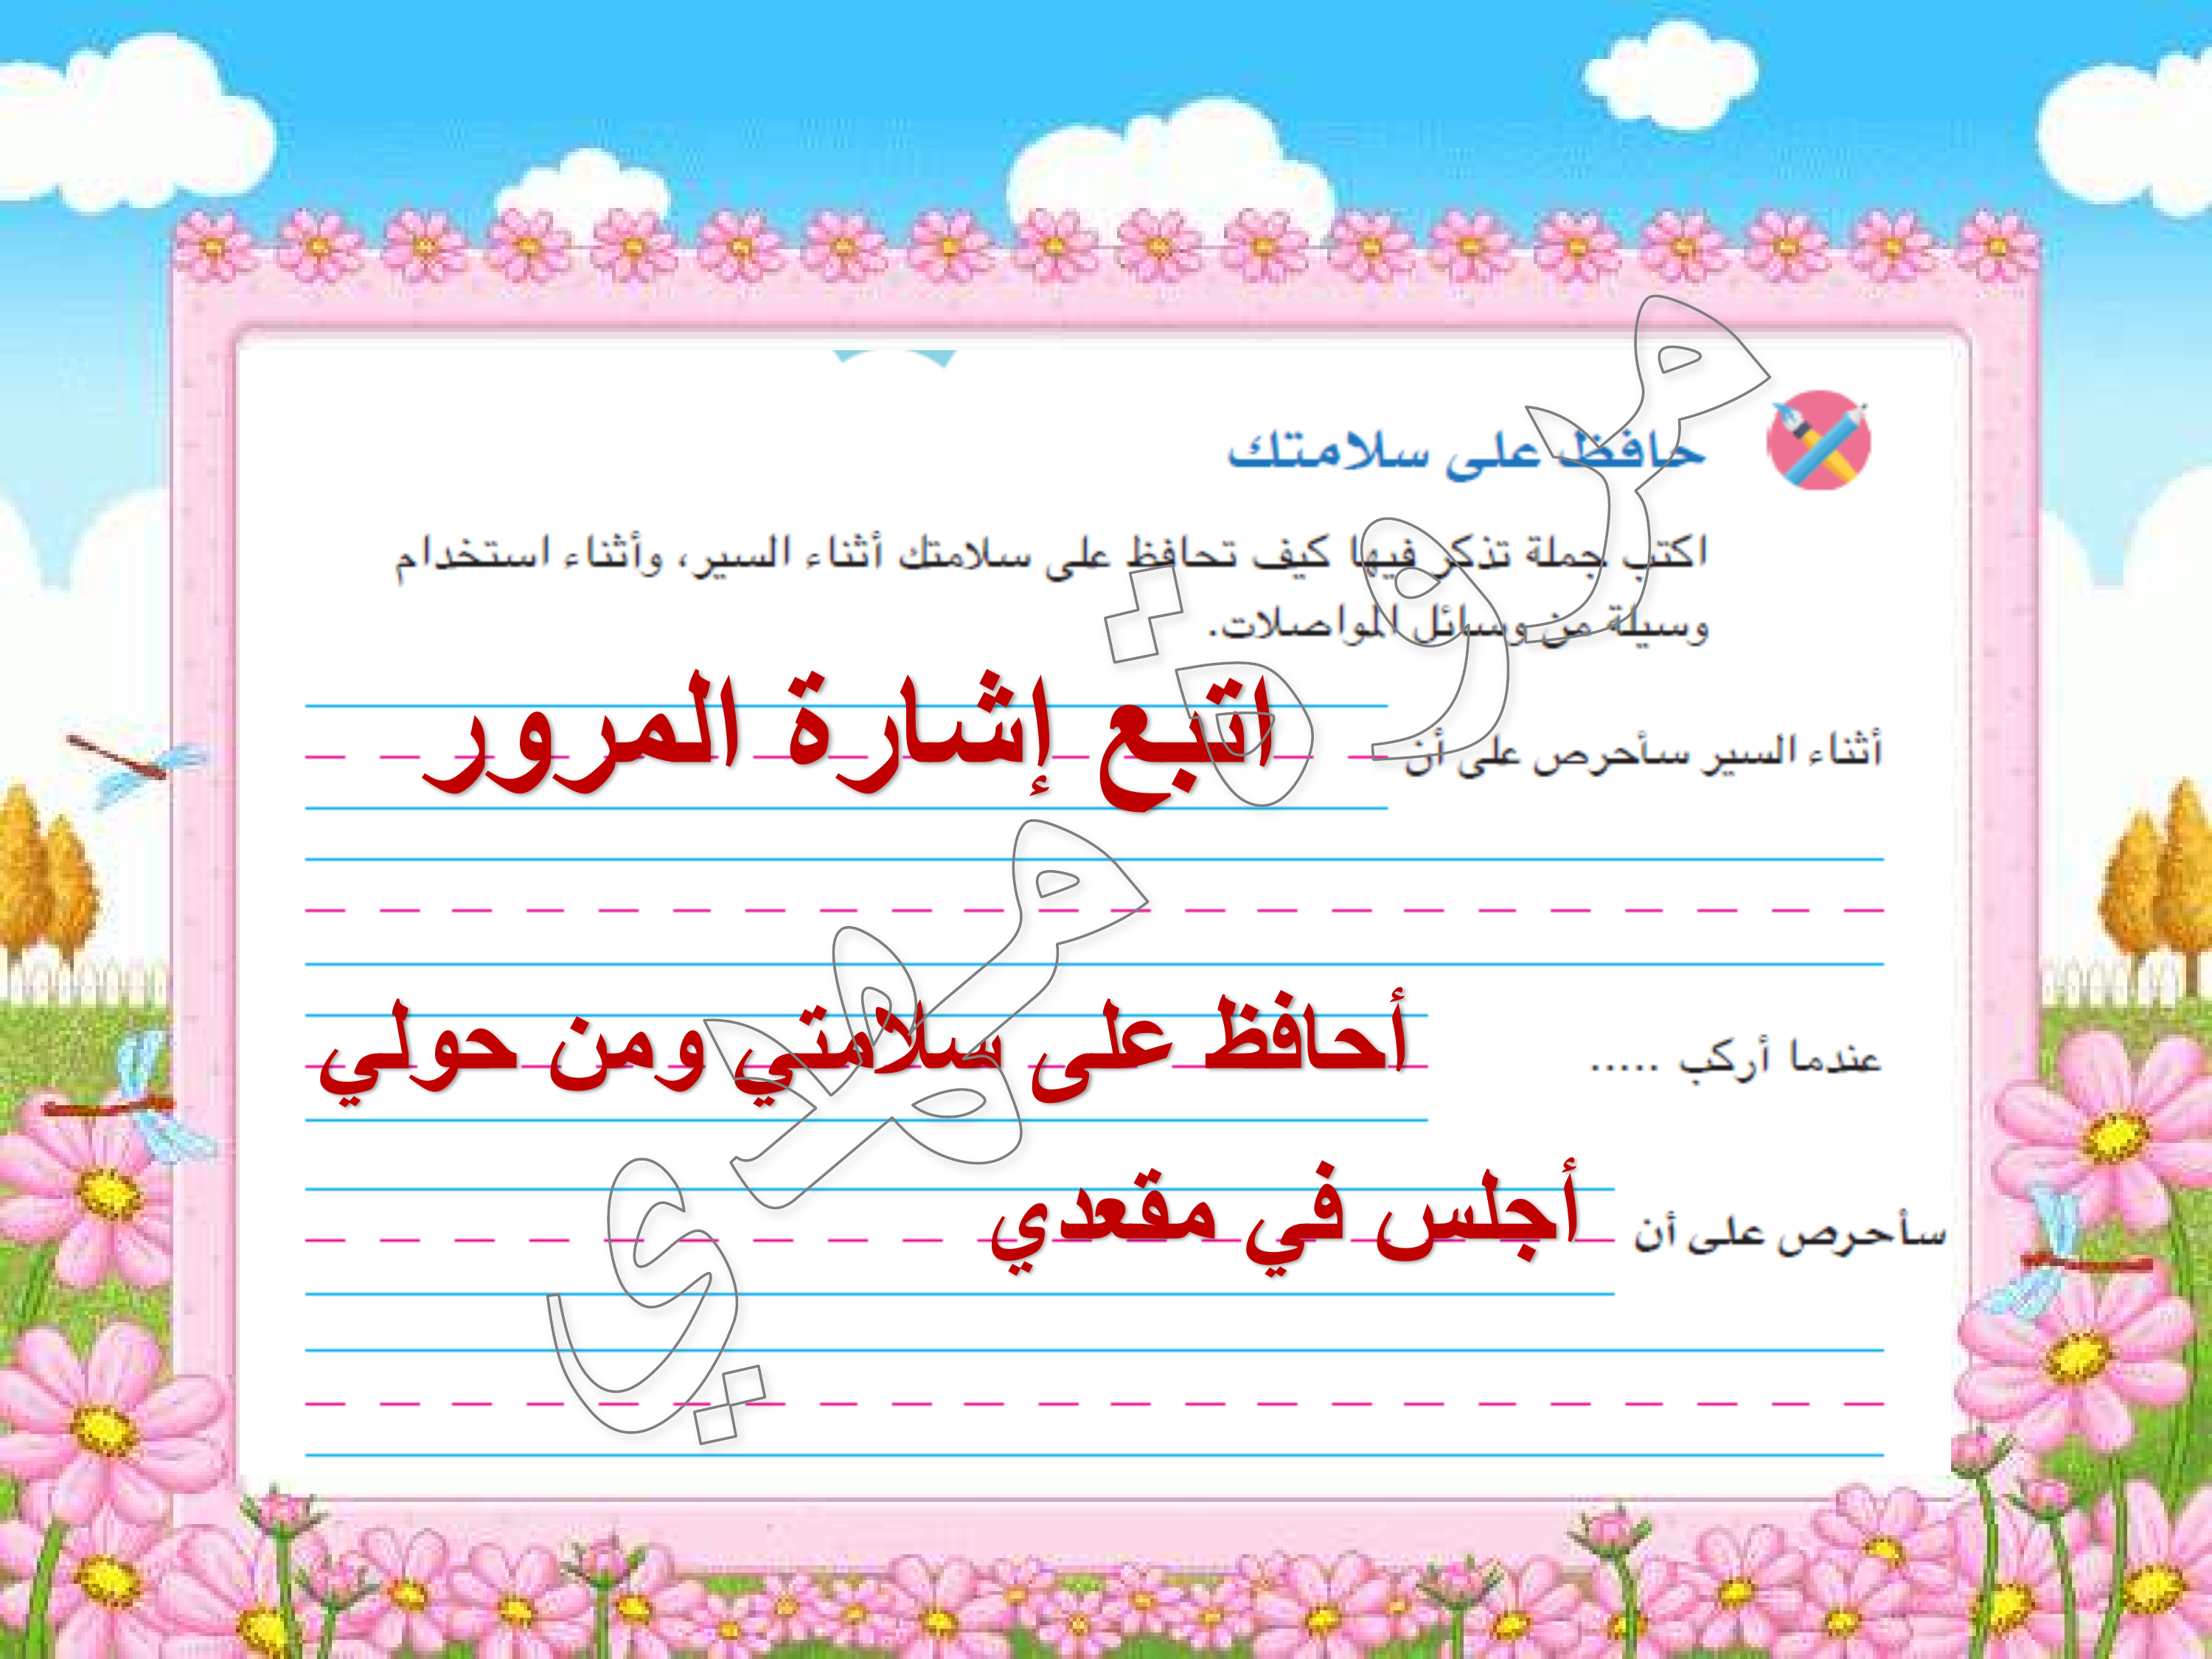 حافظ على سلامتك
اكتب جملة تذكر فيها كيف تحافظ على سلامتك أثناء السير، وأثناء استخدام
وسيلة من وسائل المواصلات.
أثناء السير سأحرص على أن اتبع إشارة المرور
عندما أركب ..... أحافظ على سلامتي ومن حولي
سأحرص على أن أجلس في مقعدي
مروة مهدي